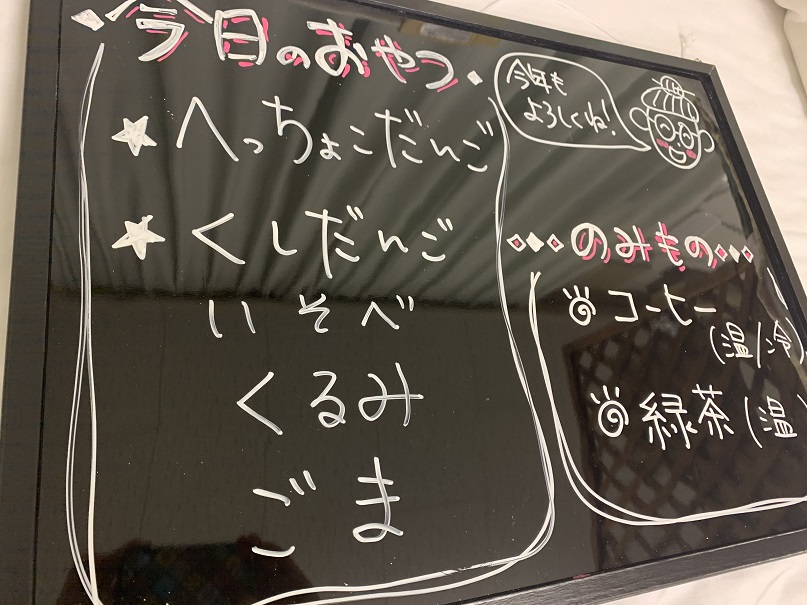 今日のおやつ
★へっちょこだんご
★くしだんご
いそべ
くるみ
ごま
今年も
よろしくね!
のみもの
コーヒー
(温/冷)
緑茶(温)